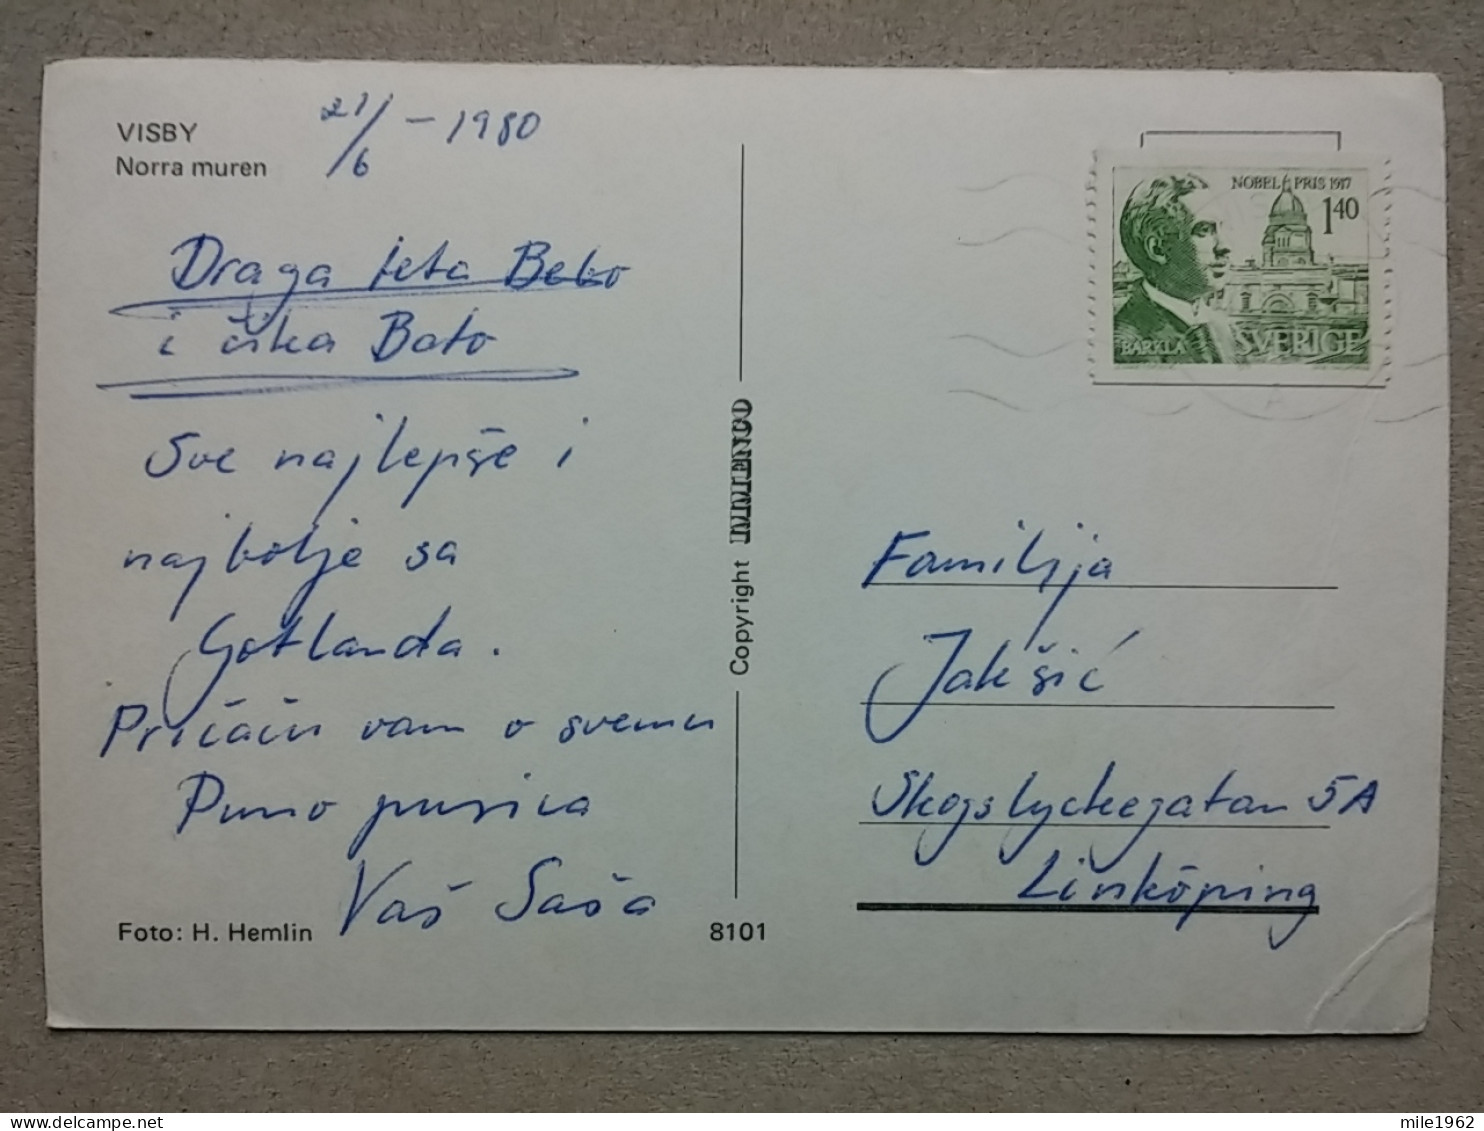 VISBY
Norra muren
21/6 - 1980
Draga teta Beba
i čika Bato
Sve najlepše i
najbolje sa
Gotlanda.
Pričaću vam o svemu
Puno pusica
Vaš Saša
Foto: H. Hemlin
8101
Copyright
NOBELPRIS 1917
1.40
BARKLA
SVERIGE
Familija
Jakšić
Skogslyckegatan 5A
Linköping
mile1962